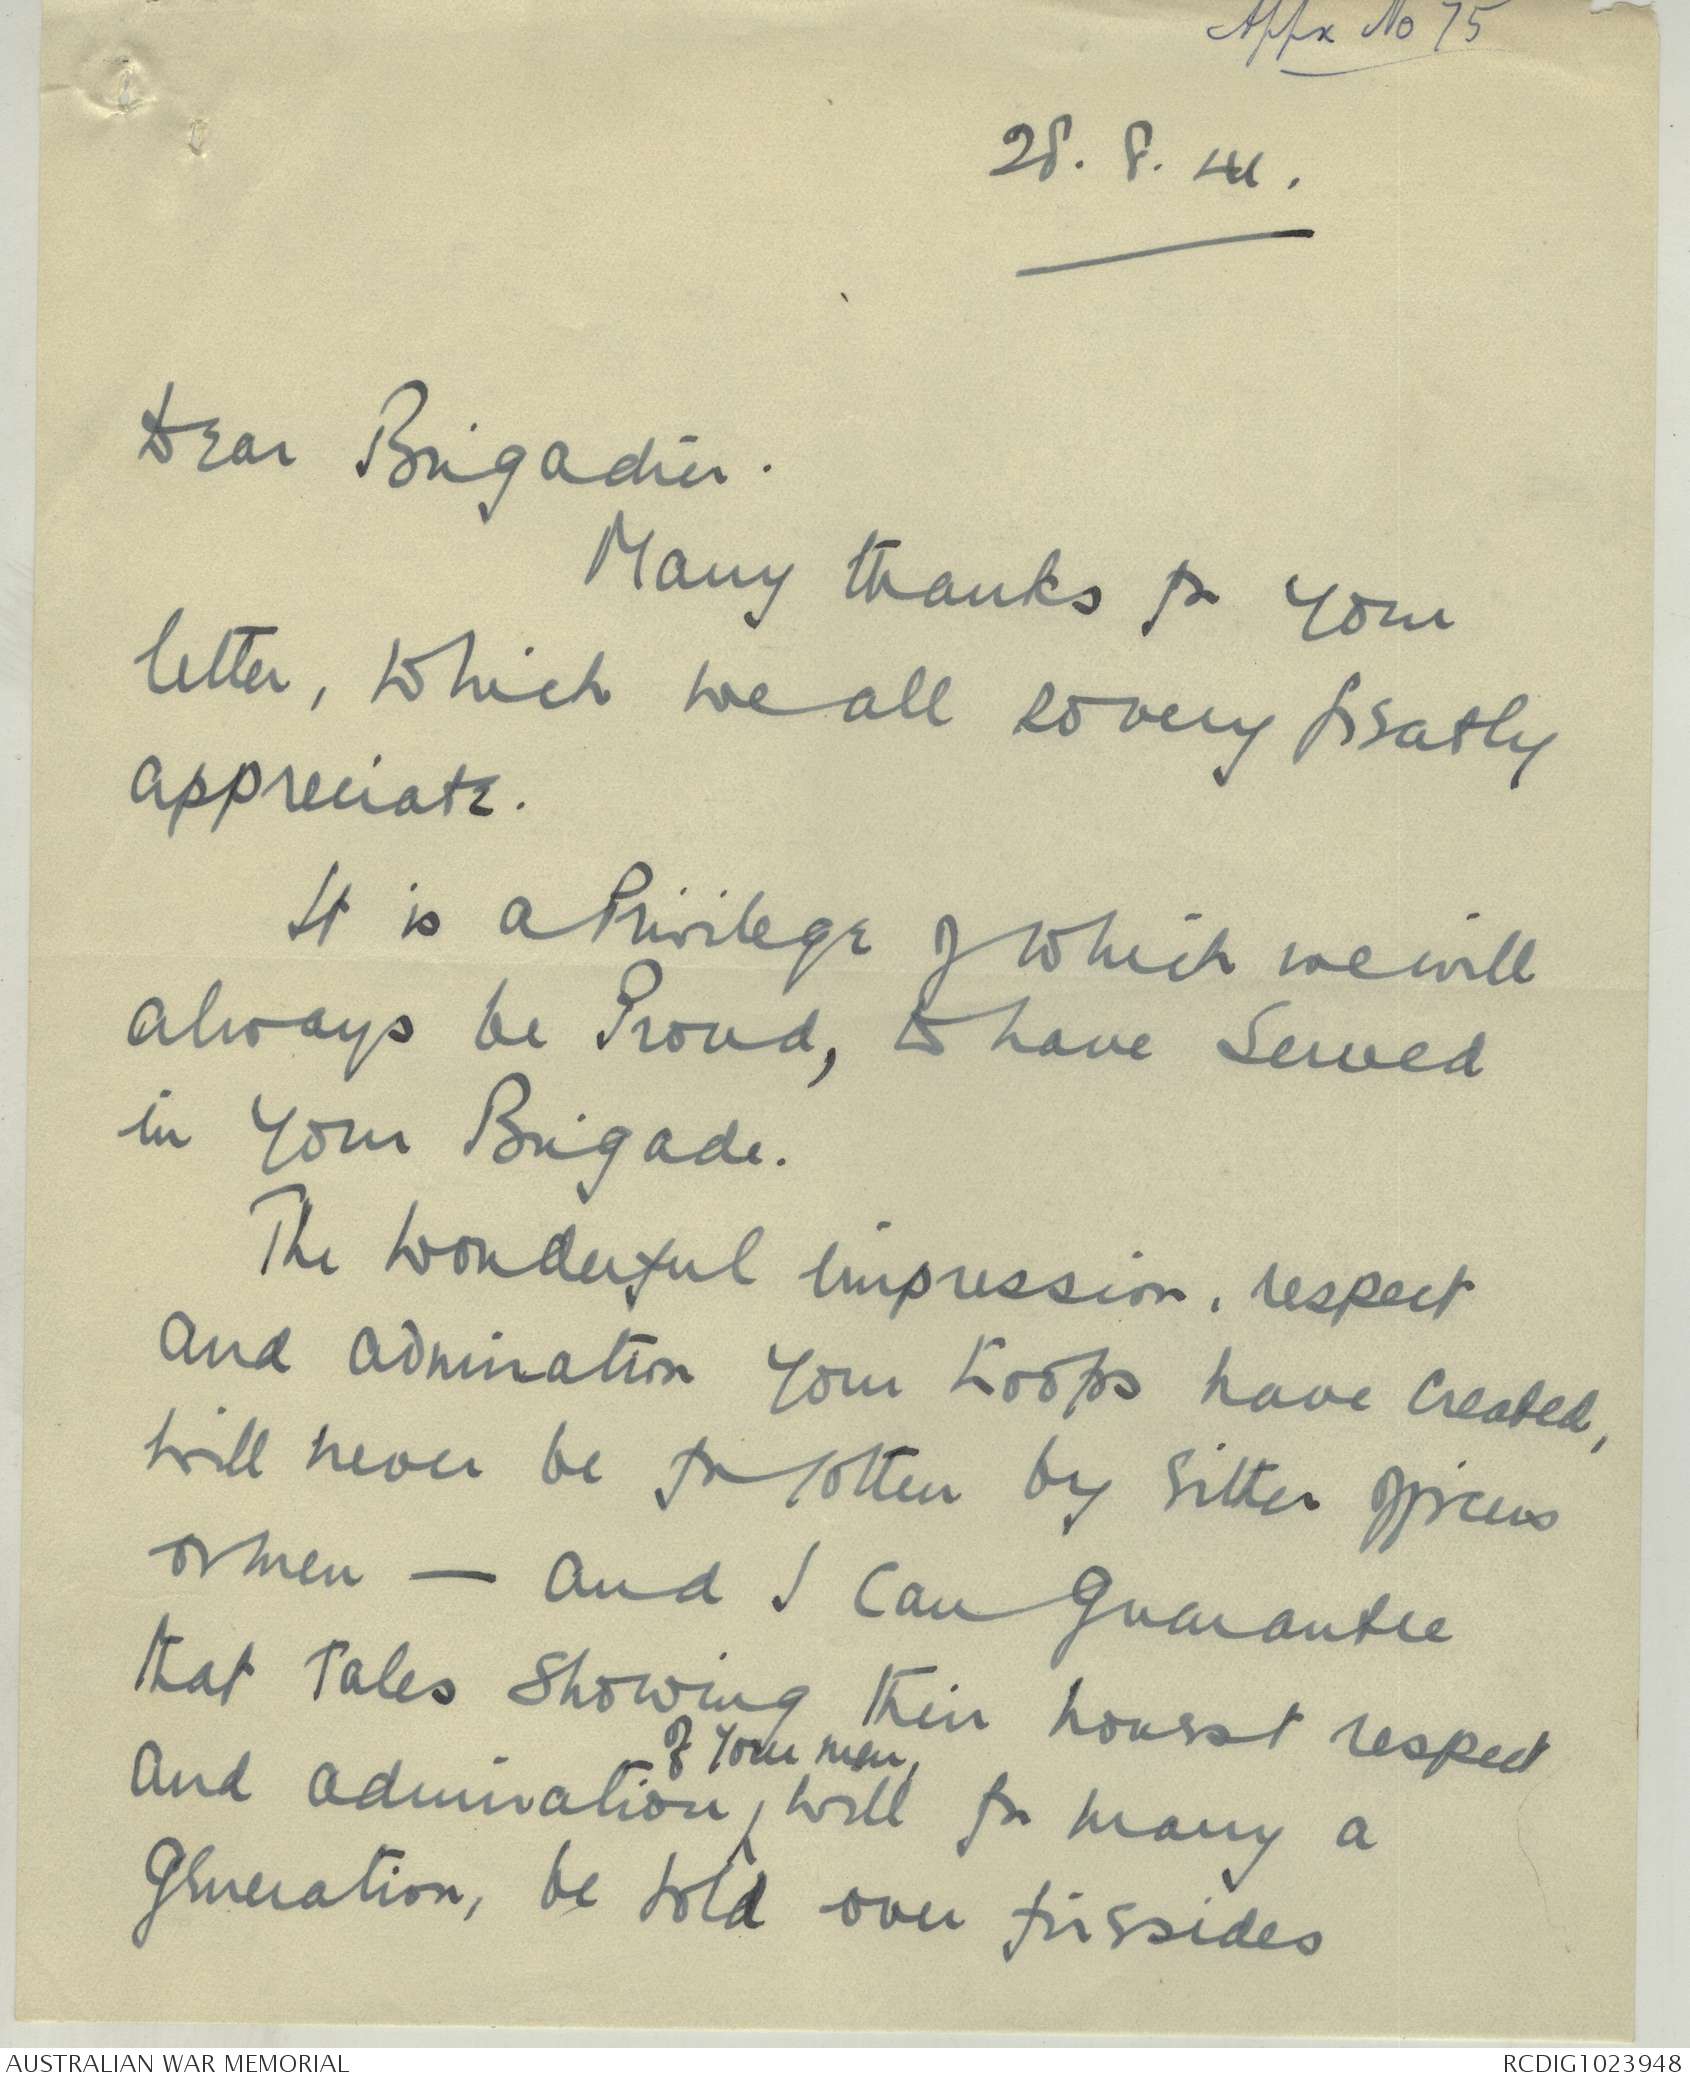 Appx No 75
28. 8. 41.
Dear Brigadier.
Many thanks for your
letter, which we all so very greatly
appreciate.
It is a Privilege of which we will
always be Proud, to have Served
in your Brigade.
The wonderful impression, respect
and admiration your troops have created,
will never be forgotten by either officers
or men — and I can guarantee
that Tales showing their honest respect
of your men,
and admiration, will for many a
generation, be told over firesides
AUSTRALIAN WAR MEMORIAL
RCDIG1023948